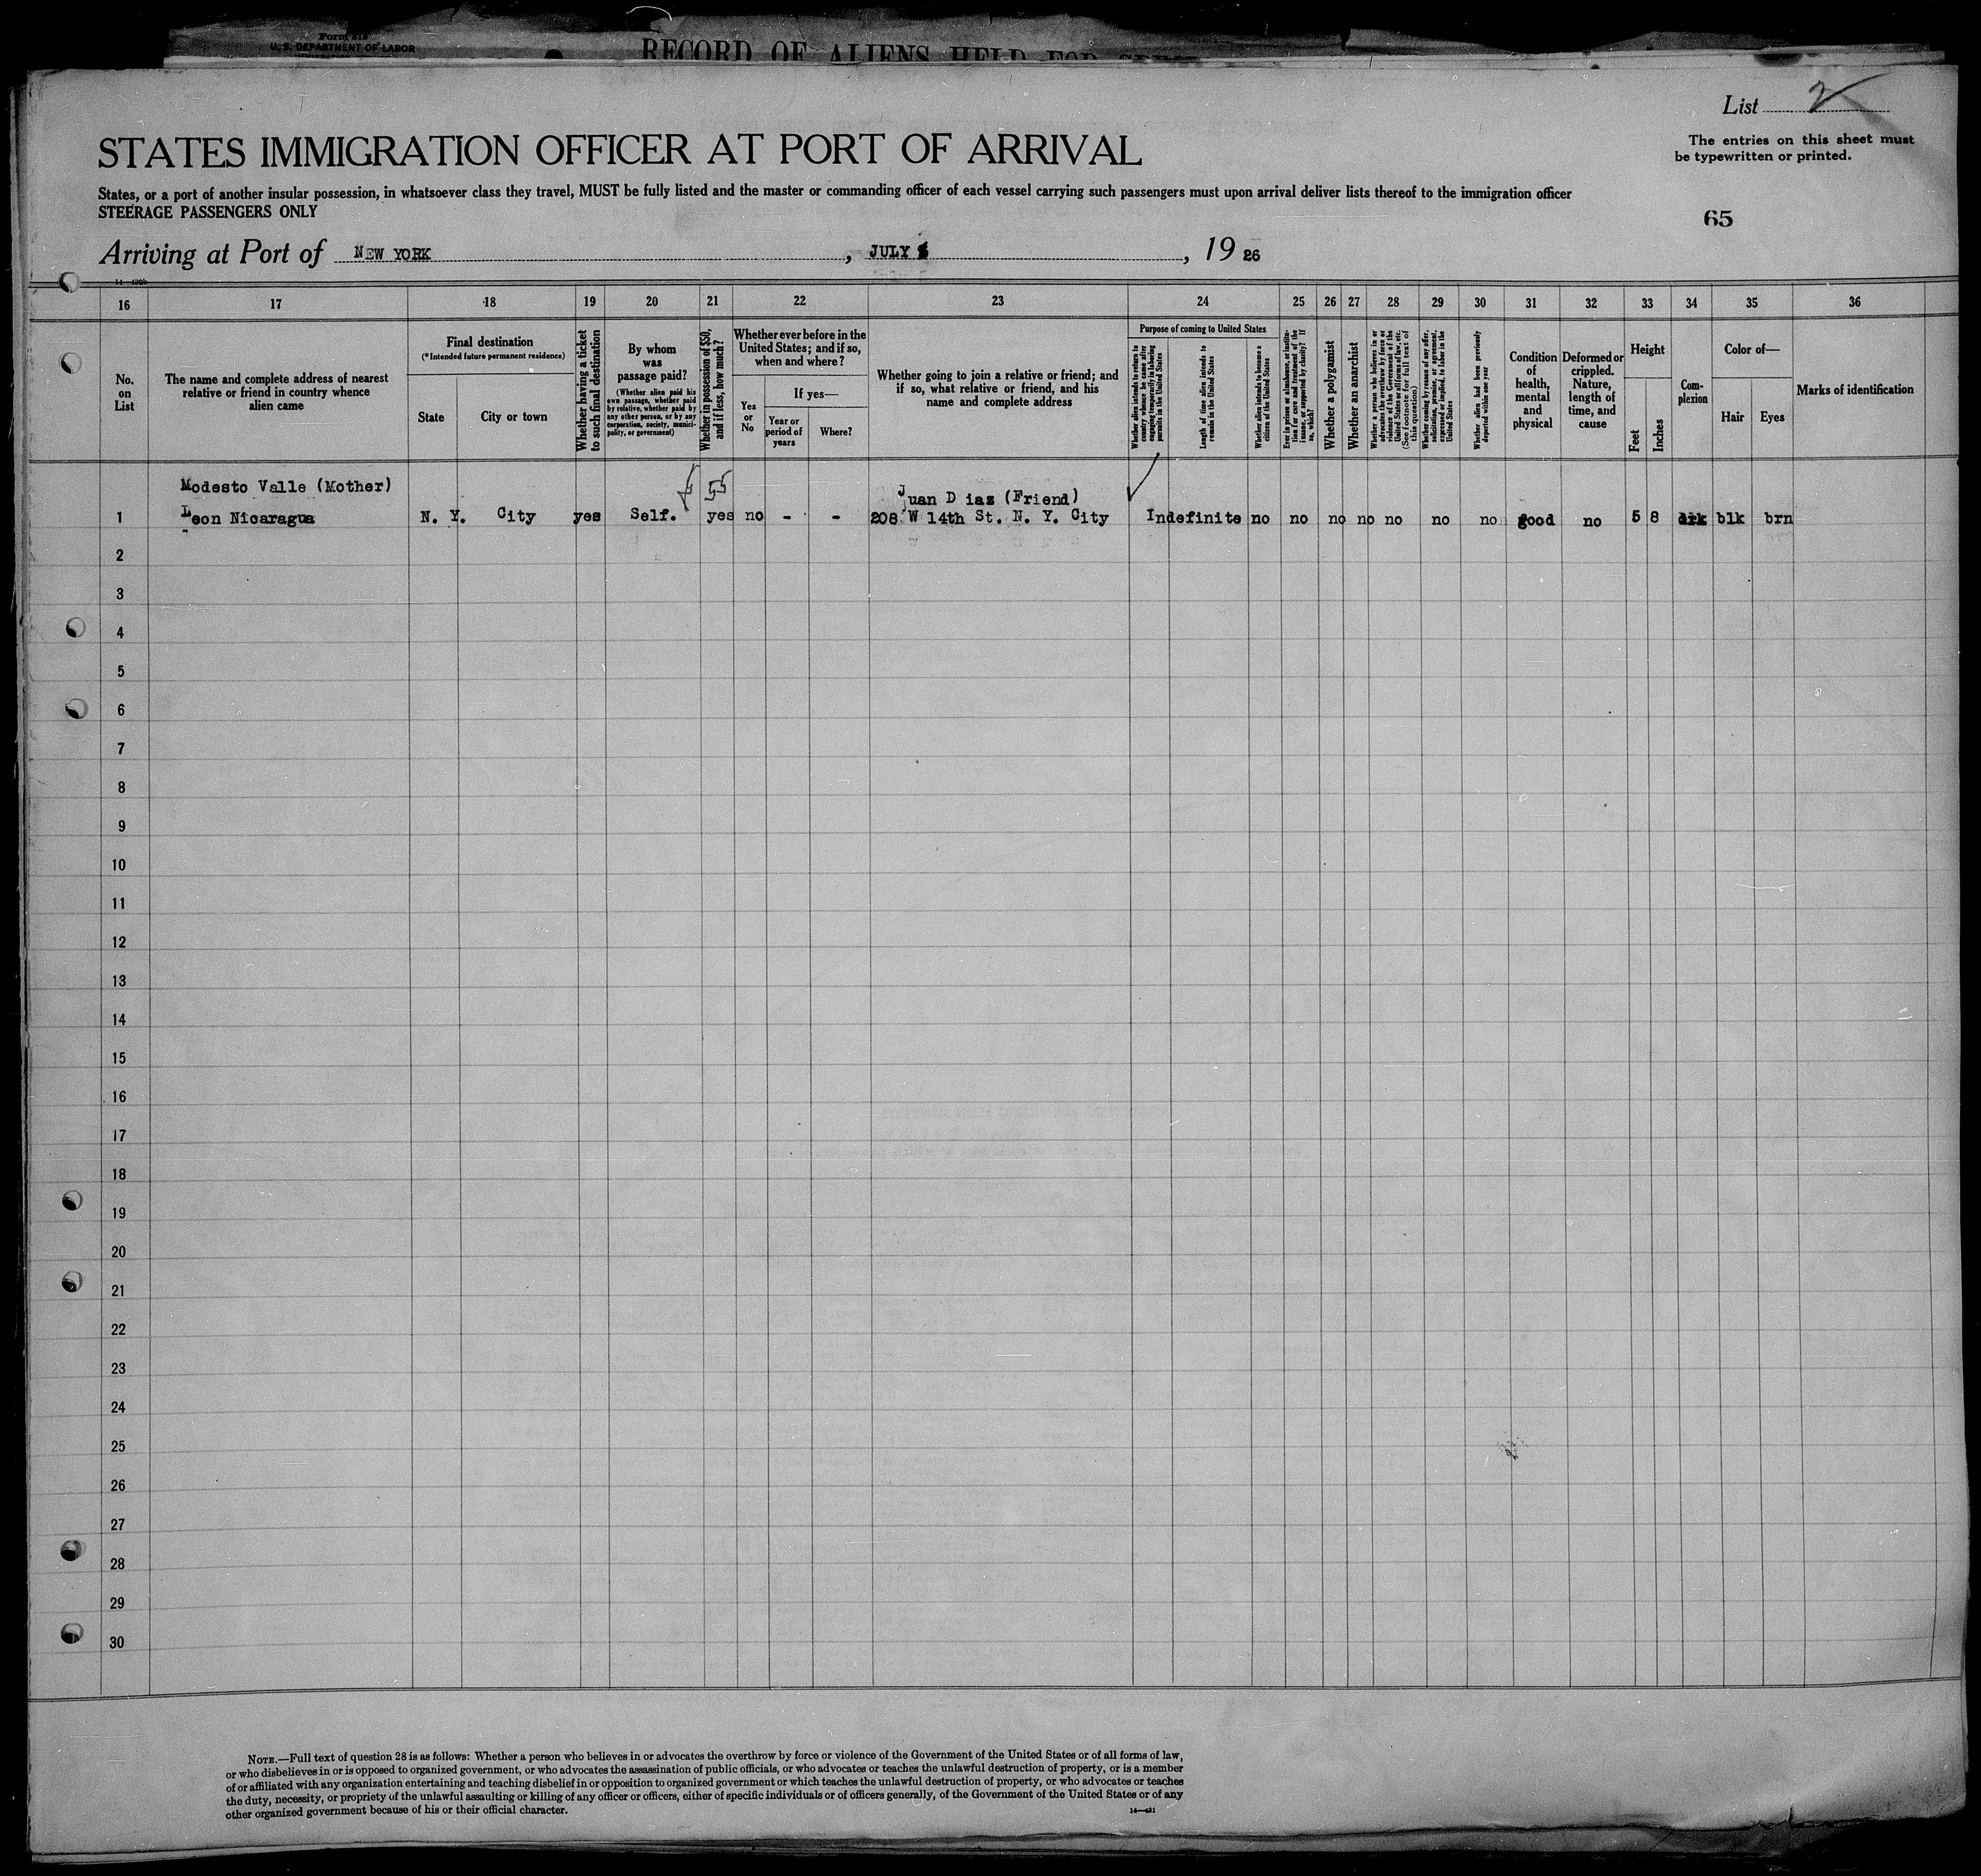 Form 519
U. S. DEPARTMENT OF LABOR
RECORD OF ALIENS HELD FOR
List 2
The entries on this sheet must
be typewritten or printed.
STATES IMMIGRATION OFFICER AT PORT OF ARRIVAL
States, or a port of another insular possession, in whatsoever class they travel, MUST be fully listed and the master or commanding officer of each vessel carrying such passengers must upon arrival deliver lists thereof to the immigration officer
STEERAGE PASSENGERS ONLY
65
Arriving at Port of NEW YORK, JULY, 19 26
16 17 18 19 20 21 22 23 24 25 26 27 28 29 30 31 32 33 34 35 36
No.
on
List
The name and complete address of nearest
relative or friend in country whence
alien came
Final destination
(*Intended future permanent residence)
State
City or town
Whether having a ticket
to such final destination
By whom
was
passage paid?
(Whether alien paid his
own passage, whether paid
by relative, whether paid by
any other person, or by any
corporation, society, munici-
pality, or government)
Whether in possession of $50,
and if less, how much?
Whether ever before in the
United States; and if so,
when and where?
Yes
or
No
If yes—
Year or
period of
years
Where?
Whether going to join a relative or friend; and
if so, what relative or friend, and his
name and complete address
Purpose of coming to United States
Whether alien intends to return to
country whence he came after
engaging temporarily in laboring
pursuits in the United States
Length of time alien intends to
remain in the United States
Whether alien intends to become a
citizen of the United States
Ever in prison or almshouse, or institu-
tion for care and treatment of the
insane, or supported by charity? If
so, which?
Whether a polygamist
Whether an anarchist
Whether a person who believes in or
advocates the overthrow by force or
violence of the Government of the
United States or all forms of law, etc.
(See footnote for full text of
this question)
Whether coming by reason of any offer,
solicitation, promise, or agreement,
expressed or implied, to labor in the
United States
Whether alien had been previously
deported within one year
Condition
of
health,
mental
and
physical
Deformed or
crippled.
Nature,
length of
time, and
cause
Height
Feet
Inches
Com-
plexion
Color of—
Hair
Eyes
Marks of identification
Modesto Valle (Mother) 55 Juan Dias (Friend)
1 Leon Nicaragua N. Y. City yes Self. yes no - - 208 W 14th St. N. Y. City Indefinite no no no no no no no good no 5 8 drk blk brn
2
3
4
5
6
7
8
9
10
11
12
13
14
15
16
17
18
19
20
21
22
23
24
25
26
27
28
29
30
NOTE.—Full text of question 28 is as follows: Whether a person who believes in or advocates the overthrow by force or violence of the Government of the United States or of all forms of law,
or who disbelieves in or is opposed to organized government, or who advocates the assassination of public officials, or who advocates or teaches the unlawful destruction of property, or is a member
of or affiliated with any organization entertaining and teaching disbelief in or opposition to organized government or which teaches the unlawful destruction of property, or who advocates or teaches
the duty, necessity, or propriety of the unlawful assaulting or killing of any officer or officers, either of specific individuals or of officers generally, of the Government of the United States or of any
other organized government because of his or their official character.
14—431